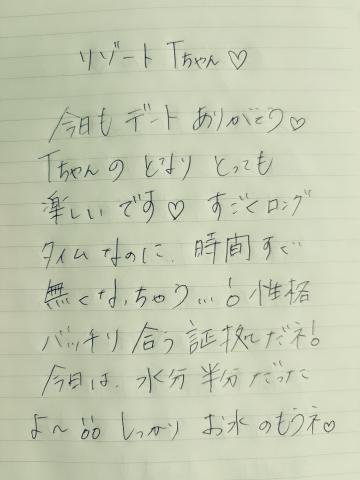 リゾート Tちゃん♡
今日も デート ありがとう♡
Tちゃんの となり とっても
楽しいです♡ すごくロング
タイムなのに、時間すぐ
無くなっちゃう…! 性格
バッチリ 合う 証拠だネ!
今日は、水分 半分だった
よ〜 しっかり お水 のもうネ♡